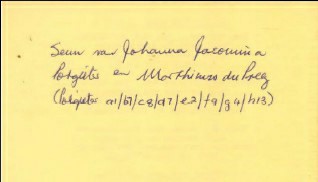 Seun van Johanna Jacomina
Potgieter en Marthinus du Preez
(Potgieter a1/b7/c8/d7/e2/f9/g4/h13)